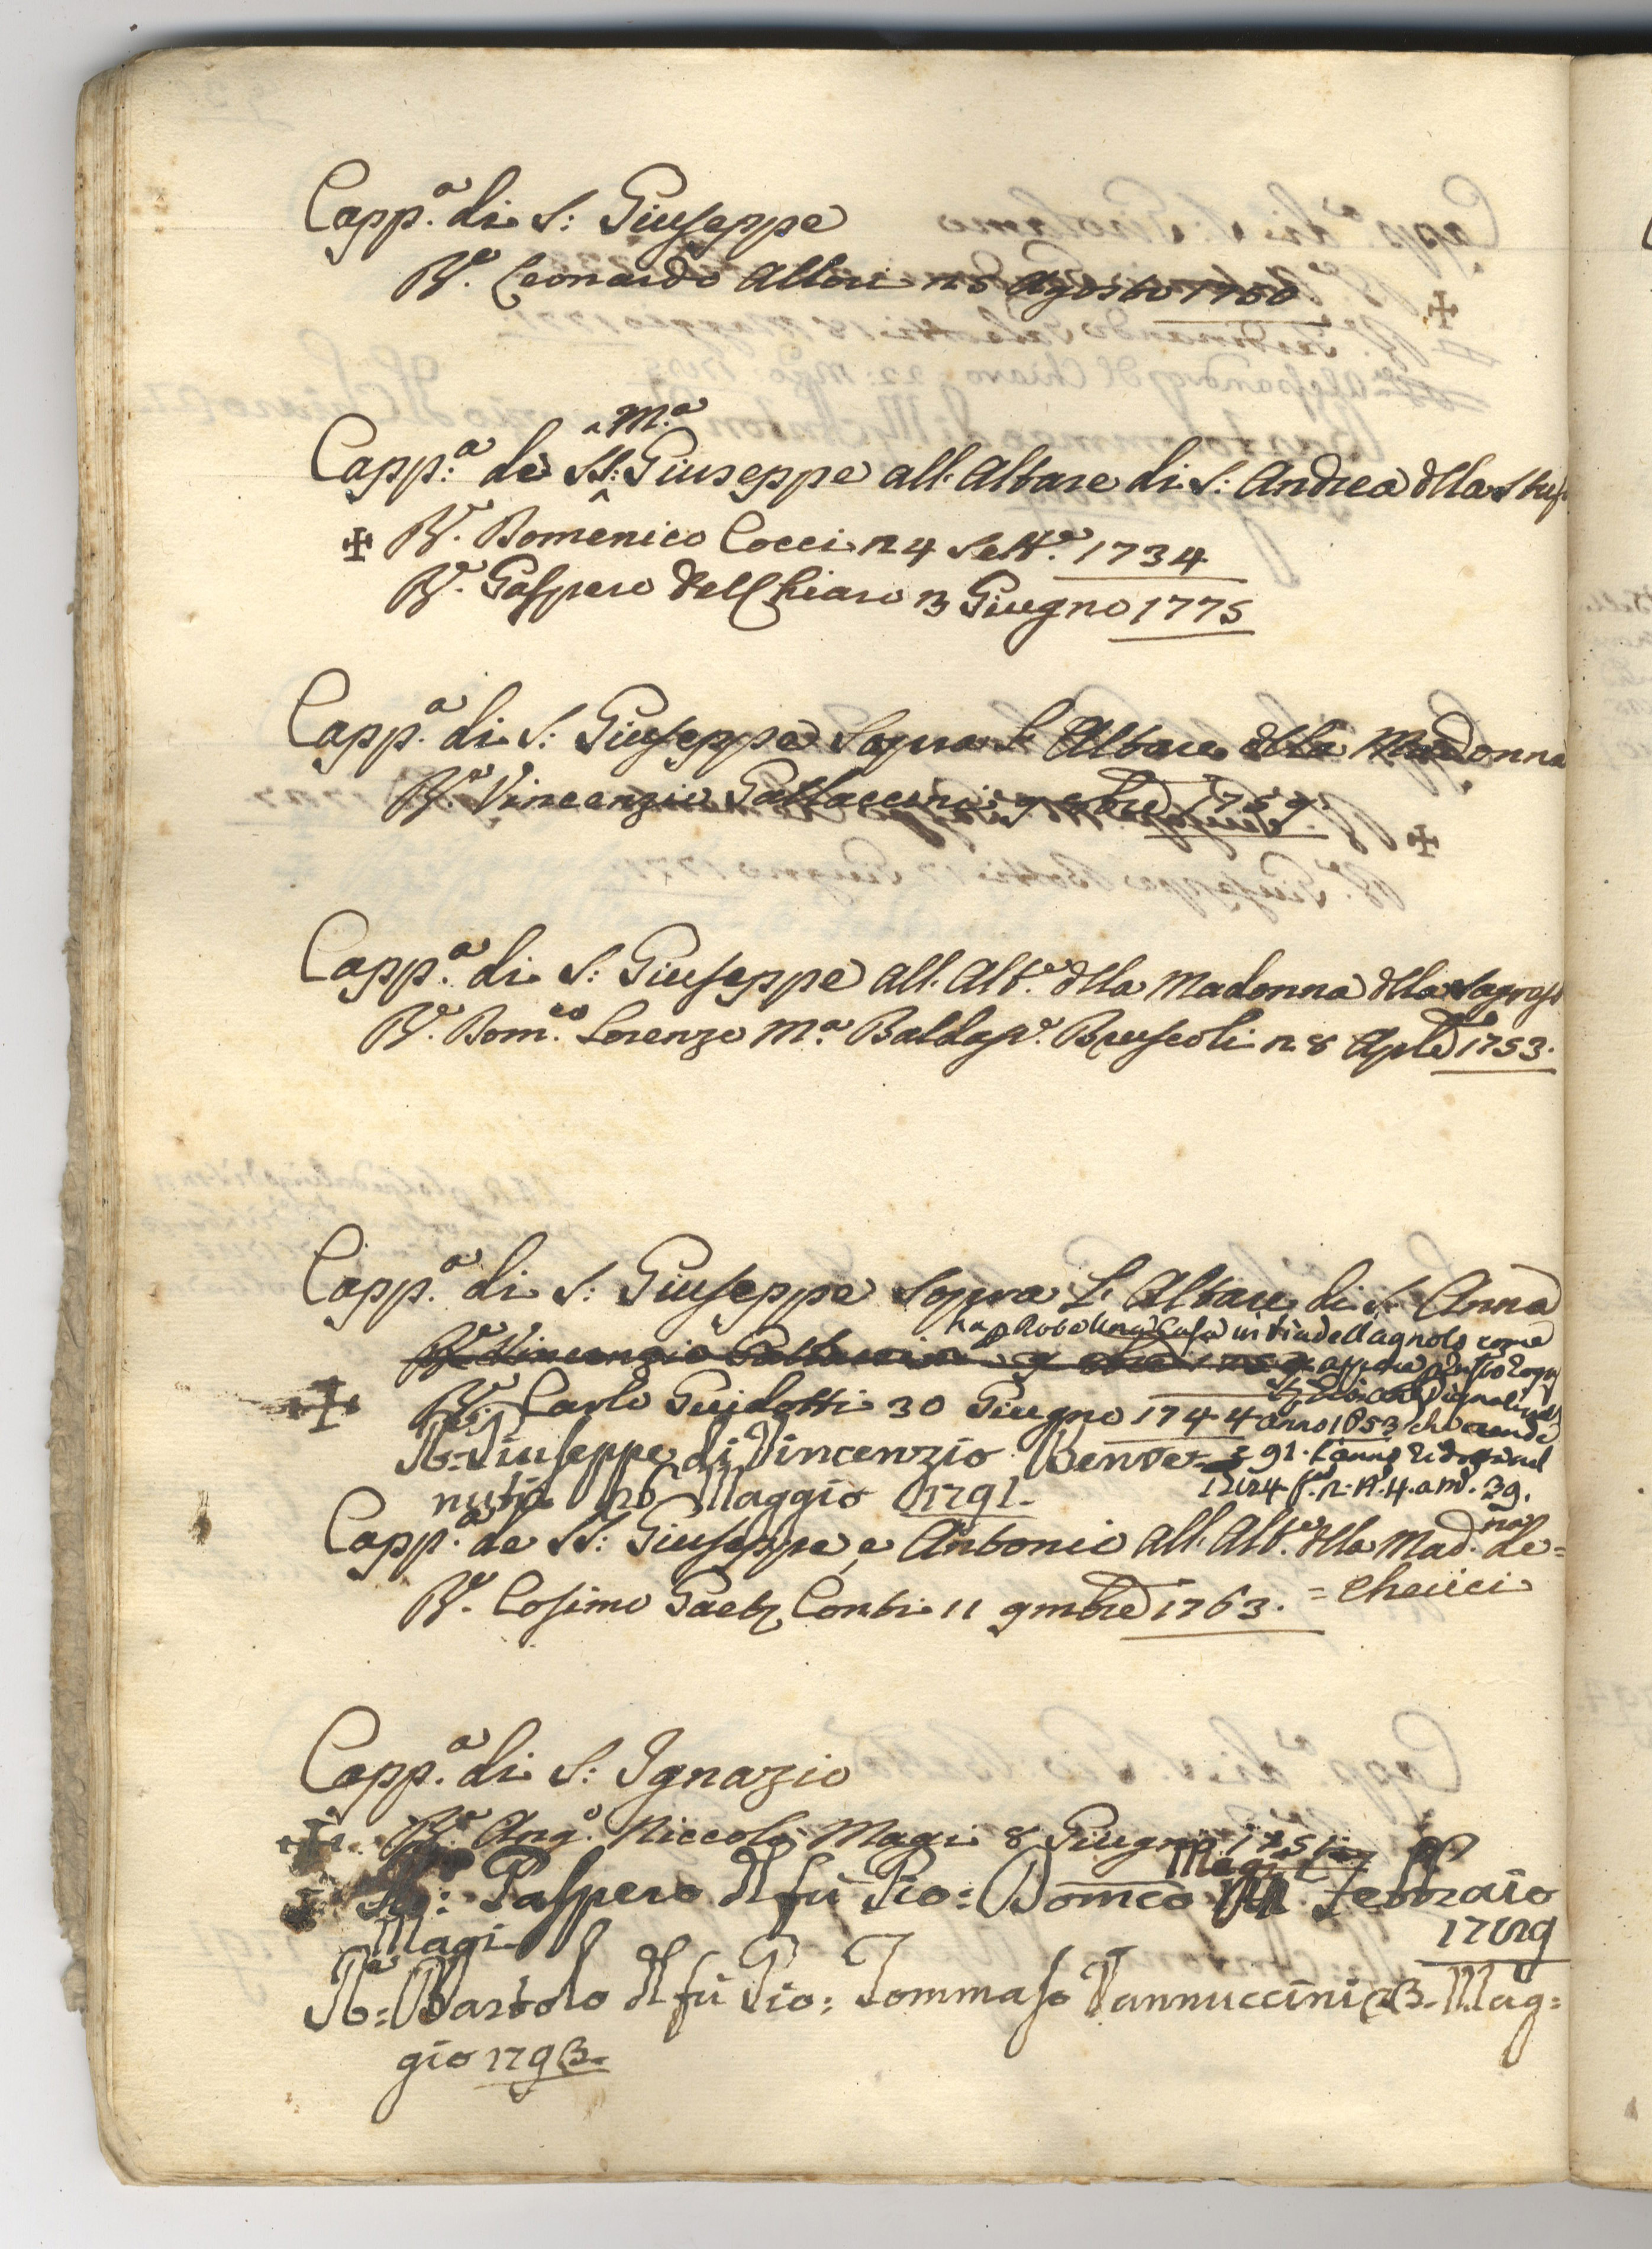 Capp.a di S: Giuseppe
R.e Leonardo Allori 28 Agosto 1760.
M.a
Capp:a de SS: Giuseppe all. Altare di S: Andrea dlla
✠ R.e Domenico Cocci 24 Sett.e 1734
R.e Gaspero Del Chiaro 3 Giugno 1775
Capp.a di S: Giuseppe Sopra L'Altare dlla Madonna
R.e Vincenzio Gattaccini 9 1759.
Capp.a di S: Giuseppe all. Alt.e dlla Madonna dlla
R.e Dom.co Lorenzo M.a Baldass.e Bruscoli 28 Aple 1753.
Capp.a di S: Giuseppe Sopra L'Altare di S. Anna
ha p Robe una Casa in via dell agnolo come
R.e Vincenzio Gattaccini 9 1759
✠ R.e Carlo Guidotti 30 Giugno 1744
anno 1653 che rende
R.e: Giuseppe di Vincenzio Benve=
91. l'anno
nuti 20 Maggio 1791.
39.
Capp.a de SS: Giuseppe, e Antonio all. Alt.e dlla Mad.na de=
=cherici
R.e Cosimo Gaet. Conti 11 9mbre 1763.
Capp.a di S: Ignazio
✠ R.e Ang.o Niccolò Magi 8 Giugno 1751
Magi
Gaspero dl fù Pio: Domco Febbraio
1789
Magi
R.e: Bartolo dl fù Pio: Tommaso Vannuccini 23. Mag=
gio 1793.